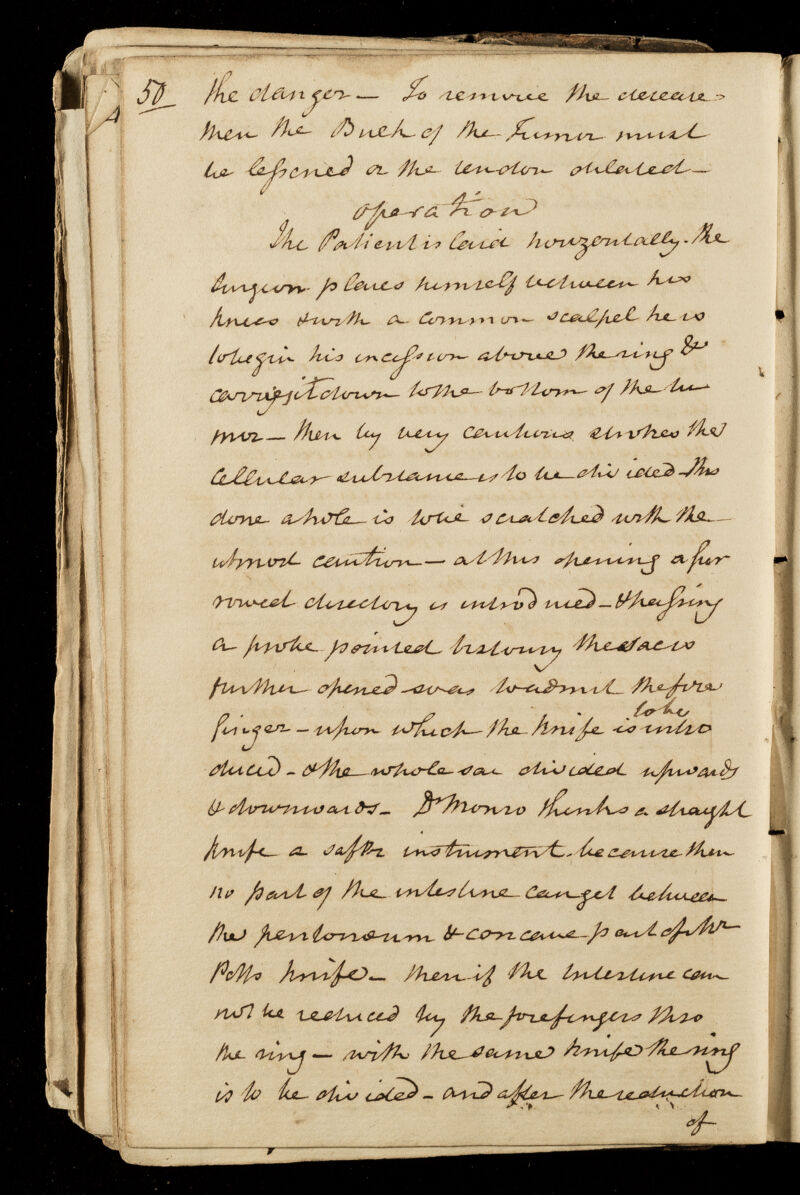 50 the danger — To remove the disease
then the Bulk of the Tumor must
be lessened or the tendon dilated —
operation
The Patient is laid horizontally. the
surgeon places himself between his
knees & with a common scalpel he is
to begin his incission above the ring &
carries it down to the bottom of the tu
mor — then by very cautious strokes the
Cellular substance is to be divided — this
done a hole is to be scratched with the
utmost caution — at this opening a fur
rowed directory is introduced — & passing
a probe pointed bistoury the sac is
further opened so as to admit the fore
finger — upon which the knife is to be intro
duced — & the whole sac divided upwards
& downwards — Dr Monro thinks a straight
knife a safer instrument. because then
no part of the intestine can get between
the peritonæum & concave part of Mr
Potts knife — then if the Intestine can
not be reduced by the forefingers thro
the ring — with the same knife the ring
is to be divided — and after the reduction
of